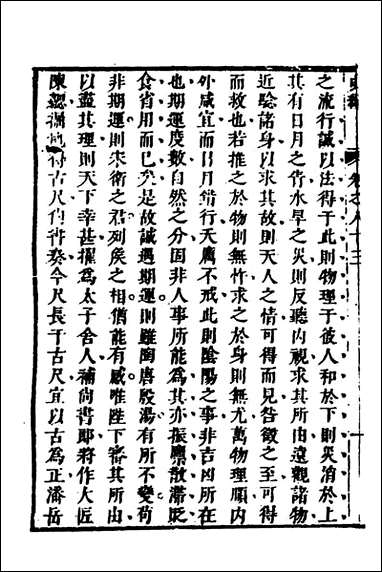 卷之八十三
之流行誠以法得于此則物理于彼人和於下則災消於上
其有日月之眚水旱之災則反聽內視求其所由遠觀諸物
近驗諸身以求其故則天人之情可得而見咎徵之至可得
而救也若推之於物則無忤求之於身則無尤萬物理順內
外咸宜而日月錯行夭癘不戒此則陰陽之事非吉凶所在
也期運度數自然之分固非人事所能為其亦振廩散滯貶
食省用而已矣是故誠遇期運則雖陶唐殷湯有所不變苟
非期運則宋衛之君列侯之相猶能有感唯陛下審其所由
以盡其理則天下幸甚擢為太子舍人補尚書郎將作大匠
陳勰掘地得古尺尚書奏今尺長于古尺宜以古為正潘岳